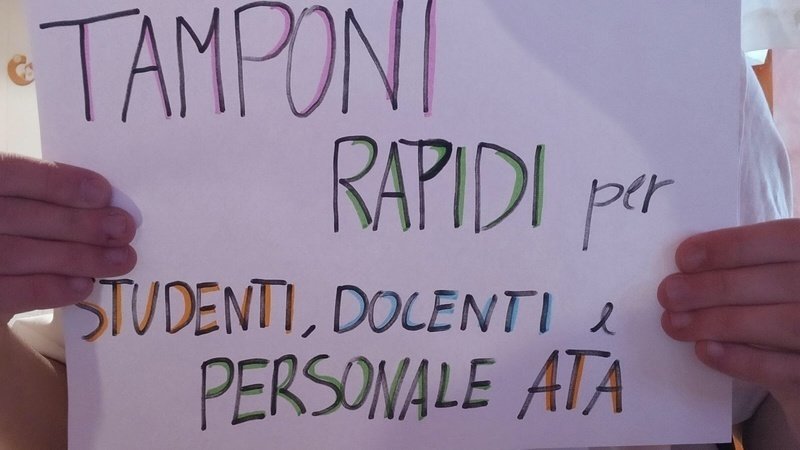 TAMPONI
RAPIDI per
STUDENTI, DOCENTI e
PERSONALE ATA